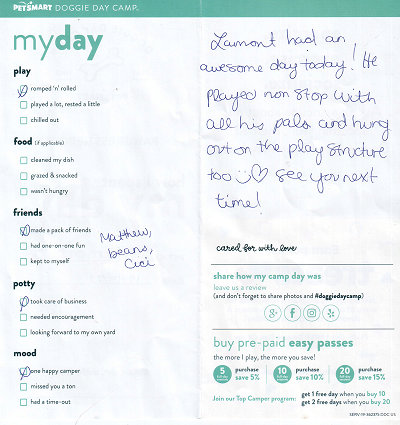 PETSMART DOGGIE DAY CAMP.
myday
play
romped 'n' rolled
played a lot, rested a little
chilled out
food (if applicable)
cleaned my dish
grazed & snacked
wasn't hungry
friends
made a pack of friends
had one-on-one fun
kept to myself
Matthew,
beans,
Cici
potty
took care of business
needed encouragement
looking forward to my own yard
mood
one happy camper
missed you a ton
had a time-out
Lamont had an
awesome day today! He
played non stop with
all his pals and hung
out on the play structure
too see you next
time!
cared for with love
share how my camp day was
leave us a review
(and don't forget to share photos and #doggiedaycamp)
g+ f
buy pre-paid easy passes
the more I play, the more you save!
5 purchase save 5%
10 purchase save 10%
20 purchase save 15%
Join our Top Camper program: get 1 free day when you buy 10
get 2 free days when you buy 20